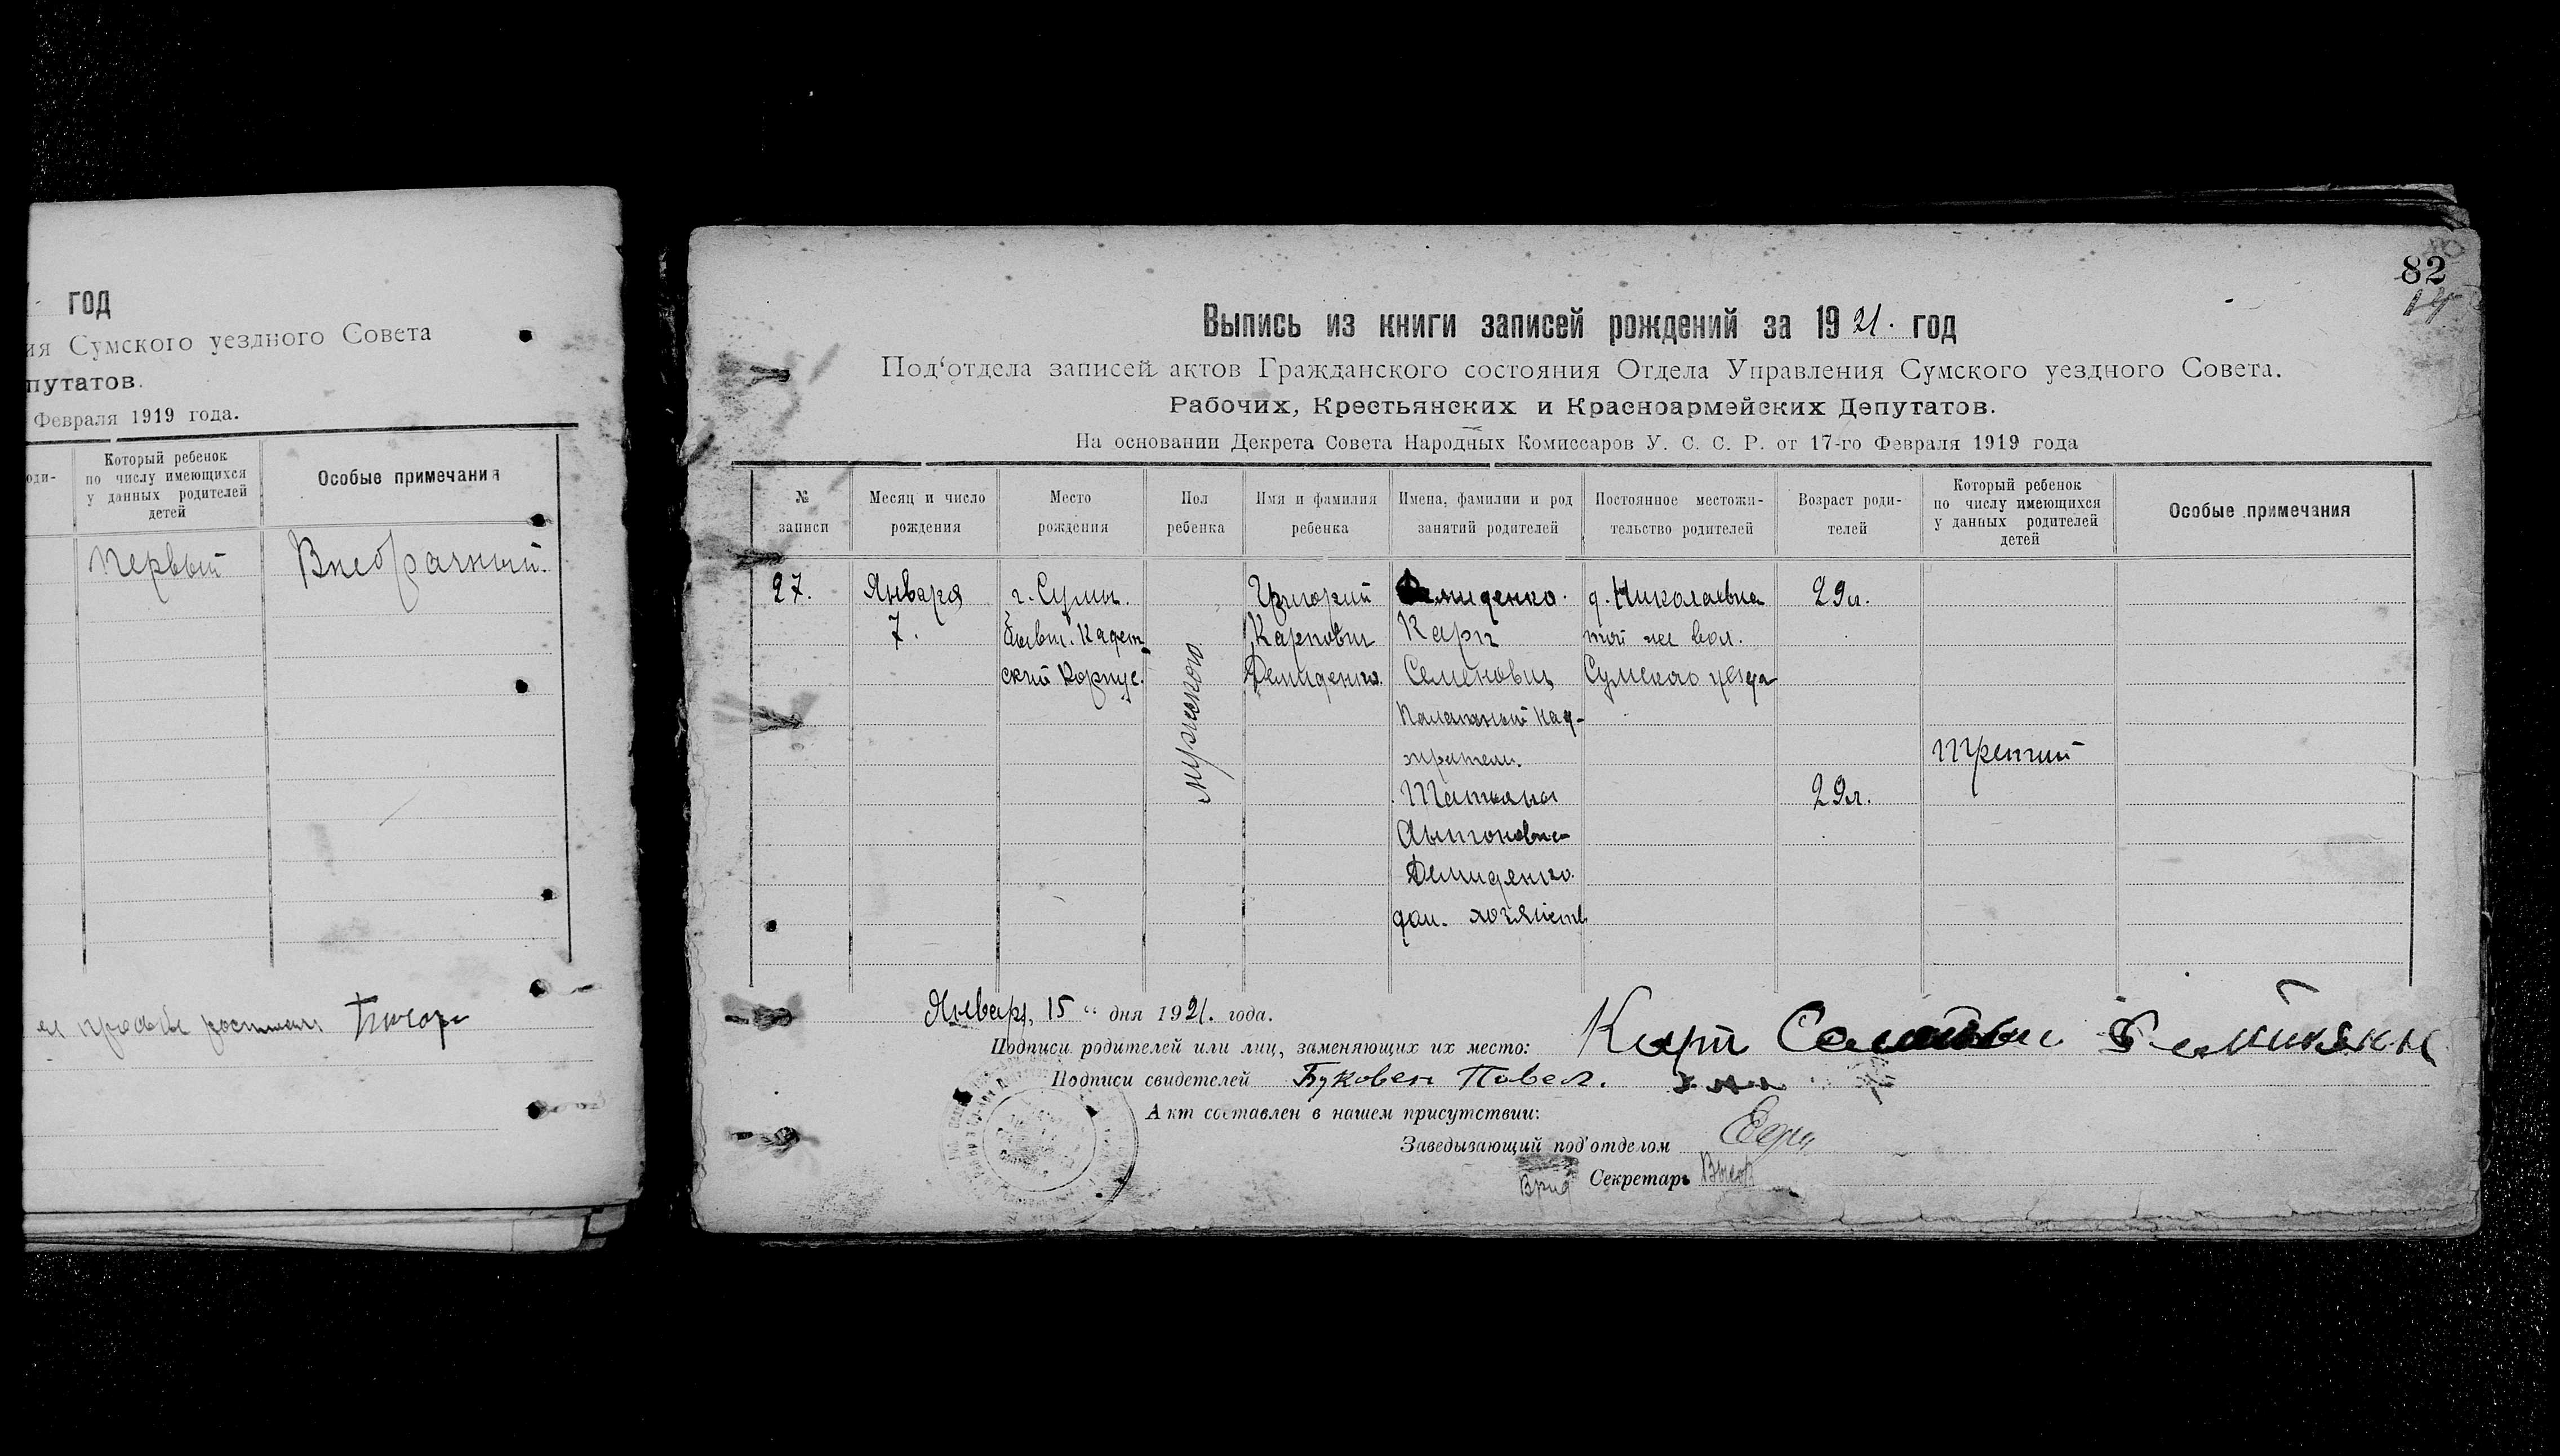 год
ия Сумского уездного Совета
путатов.
Февраля 1919 года.
оди-
Который ребенок
по числу имеющихся
у данных родителей
детей
Особые примечания
Первый
Внебрачный.
82
Выпись из книги записей рождений за 1921. год
Под'отдела записей актов Гражданского состояния Отдела Управления Сумского уездного Совета.
Рабочих, Крестьянских и Красноармейских Депутатов.
На основании Декрета Совета Народных Комиссаров У. С. С. Р. от 17-го Февраля 1919 года
№
записи
Месяц и число
рождения
Место
рождения
Пол
ребенка
Имя и фамилия
ребенка
Имена, фамилии и род
занятий родителей
Постоянное местожи-
тельство родителей
Возраст роди-
телей
Который ребенок
по числу имеющихся
у данных родителей
детей
Особые примечания
27.
Января
7.
г. Сумы.
бывш. Кадет
ский Корпус.
мужского
Григорий
Карпович
Демиденко.
Демиденко.
Карп
Семенович
Палатный над-
зиратель.
Татьяна
Антоновна
Демиденко.
дом. хозяйств
д. Николаевка
той же вол.
Сумского уезда
29 л.
29 л.
Третий
Январ, 15 " дня 1921. года.
Подписи родителей или лиц, заменяющих их место: Карп
Подписи свидетелей Буковен Павел.
Акт составлен в нашем присутствии:
Заведывающий под'отделом
Врид Секретарь